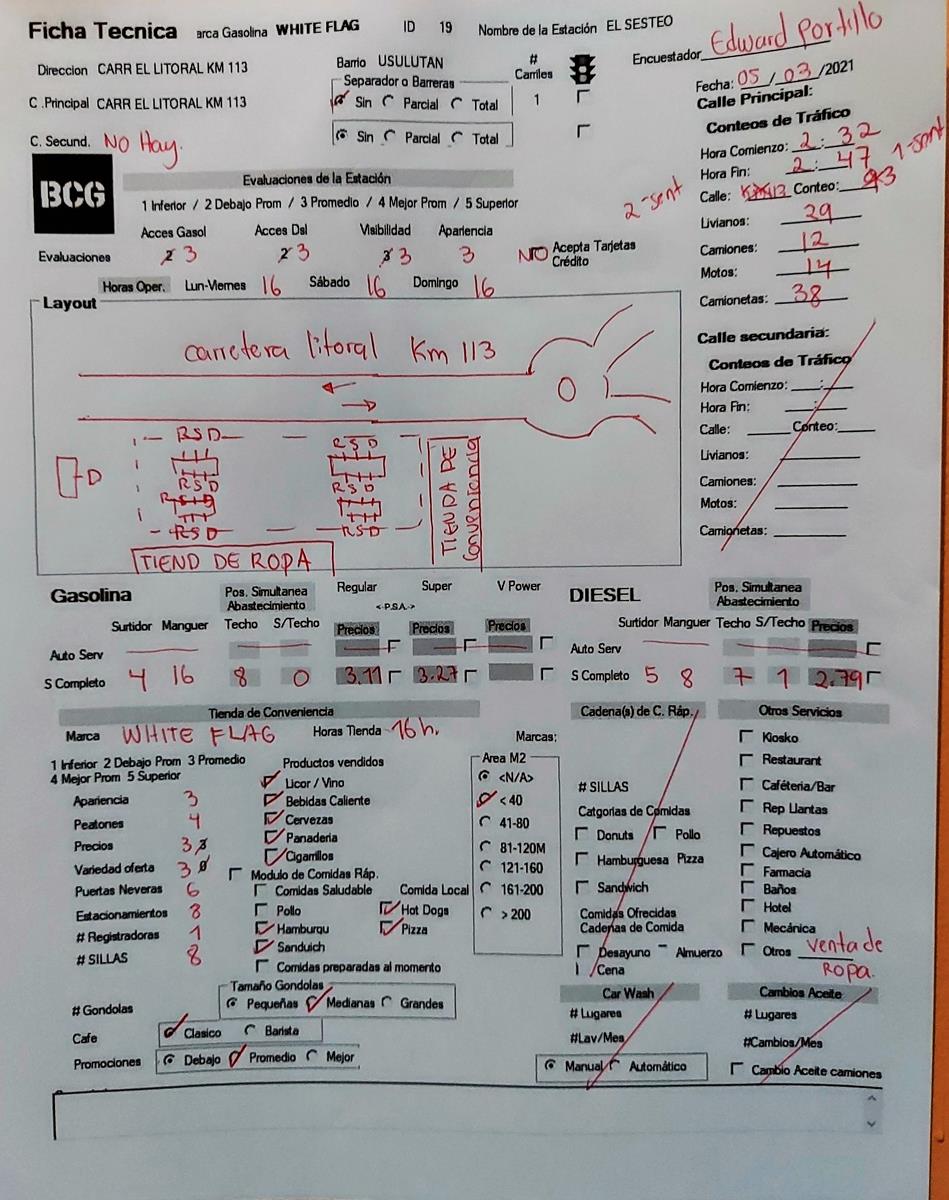 Ficha Tecnica arca Gasolina WHITE FLAG ID 19 Nombre de la Estación EL SESTEO
Encuestador Edward Portillo
Direccion CARR EL LITORAL KM 113 Barrio USULUTAN # Carriles
Separador o Barreras
Fecha: 05/03/2021
C .Principal CARR EL LITORAL KM 113 Sin Parcial Total 1
Calle Principal:
Sin Parcial Total
Conteos de Tráfico
C. Secund. NO Hay.
Hora Comienzo: 2:32
Hora Fin: 2:47 1-sent
BCG
Evaluaciones de la Estación
1 Inferior / 2 Debajo Prom / 3 Promedio / 4 Mejor Prom / 5 Superior
2-sent
Calle: Conteo: 93
Livianos: 29
Camiones: 12
Motos: 14
Camionetas: 38
Acces Gasol Acces Dsl Visibilidad Apariencia
Evaluaciones 2 3 2 3 3 3 3 NO Acepta Tarjetas Crédito
Horas Oper. Lun-Viernes 16 Sábado 16 Domingo 16
Layout
carretera litoral Km 113
RSD RSD
D
RSD RSD
RSD
RSD RSD
TIENDA DE Conveniencia
TIEND DE ROPA
Calle secundaria:
Conteos de Tráfico
Hora Comienzo: :
Hora Fin: :
Calle: Conteo:
Livianos:
Camiones:
Motos:
Camionetas:
Gasolina Pos. Simultanea Abastecimiento Regular Super V Power
<-P.S.A.->
Surtidor Manguer Techo S/Techo Precios Precios Precios
Auto Serv
S Completo 4 16 8 0 3.11 3.27
DIESEL Pos. Simultanea Abastecimiento
Surtidor Manguer Techo S/Techo Precios
Auto Serv
S Completo 5 8 7 1 2.79
Tienda de Conveniencia
Marca WHITE FLAG Horas Tienda 16 h. Marcas:
1 Inferior 2 Debajo Prom 3 Promedio
4 Mejor Prom 5 Superior
Apariencia 3
Peatones 4
Precios 3
Variedad oferta 3
Puertas Neveras 6
Estacionamientos 8
# Registradoras 1
# SILLAS 8
Productos vendidos
Licor / Vino
Bebidas Caliente
Cervezas
Panaderia
Cigarrillos
Modulo de Comidas Ráp.
Comidas Saludable Comida Local
Pollo Hot Dogs
Hamburqu Pizza
Sanduich
Comidas preparadas al momento
Area M2
<N/A>
< 40
41-80
81-120M
121-160
161-200
> 200
# Gondolas Tamaño Gondolas
Pequeñas Medianas Grandes
Cafe Clasico Barista
Promociones Debajo Promedio Mejor
Cadena(s) de C. Ráp.
# SILLAS
Catgorias de Comidas
Donuts Pollo
Hamburguesa Pizza
Sandwich
Comidas Ofrecidas
Cadenas de Comida
Desayuno Almuerzo
Cena
Car Wash
# Lugares
#Lav/Mes
Manual Automático
Otros Servicios
Kiosko
Restaurant
Caféteria/Bar
Rep Llantas
Repuestos
Cajero Automático
Farmacia
Baños
Hotel
Mecánica
Otros venta de
ROPA.
Cambios Aceite
# Lugares
#Cambios/Mes
Cambio Aceite camiones